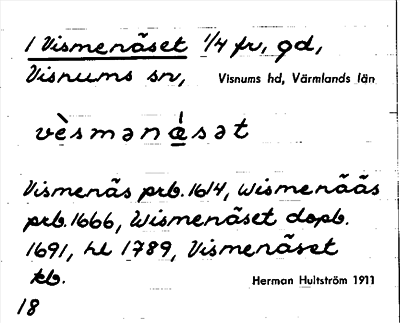 1 Vismenäset 1/4 fr, gd,
Visnums sn, Visnums hd, Värmlands län
vèsmənǽsət
Vismenäs prb. 1614, Wismenääs
prb. 1666, Wismenäset dopb.
1691, hl 1789, Vismenäset
kb. Herman Hultström 1911
18